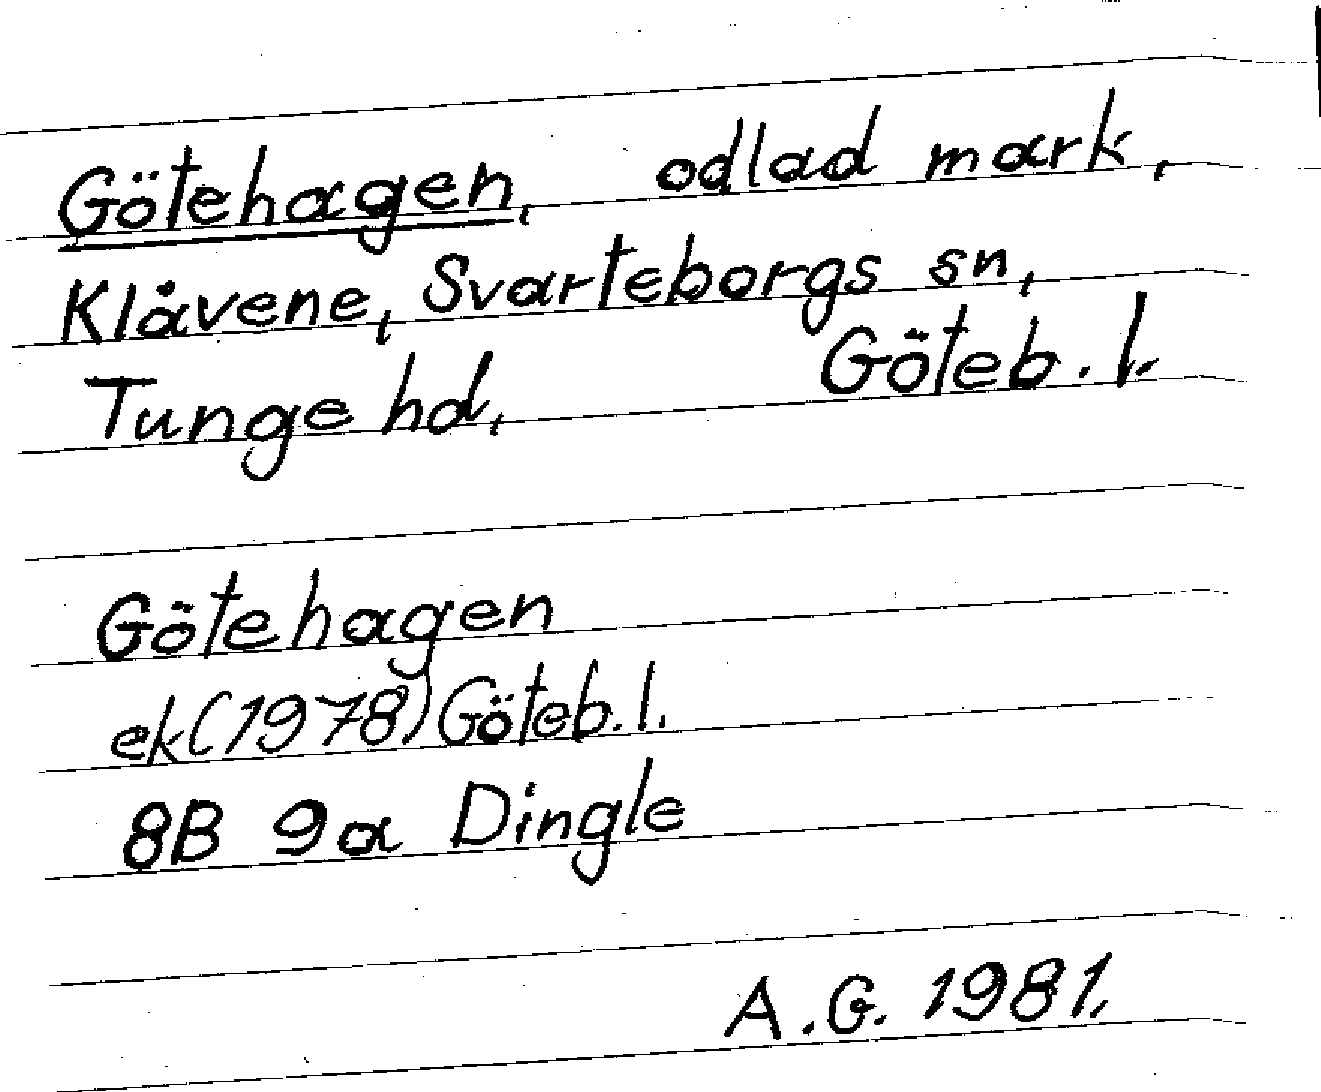 Götehagen, odlad mark,
Klåvene, Svarteborgs sn,
Tunge hd, Göteb. l.
Götehagen
ek(1978) Göteb. l.
8B 9a Dingle
A.G. 1981.